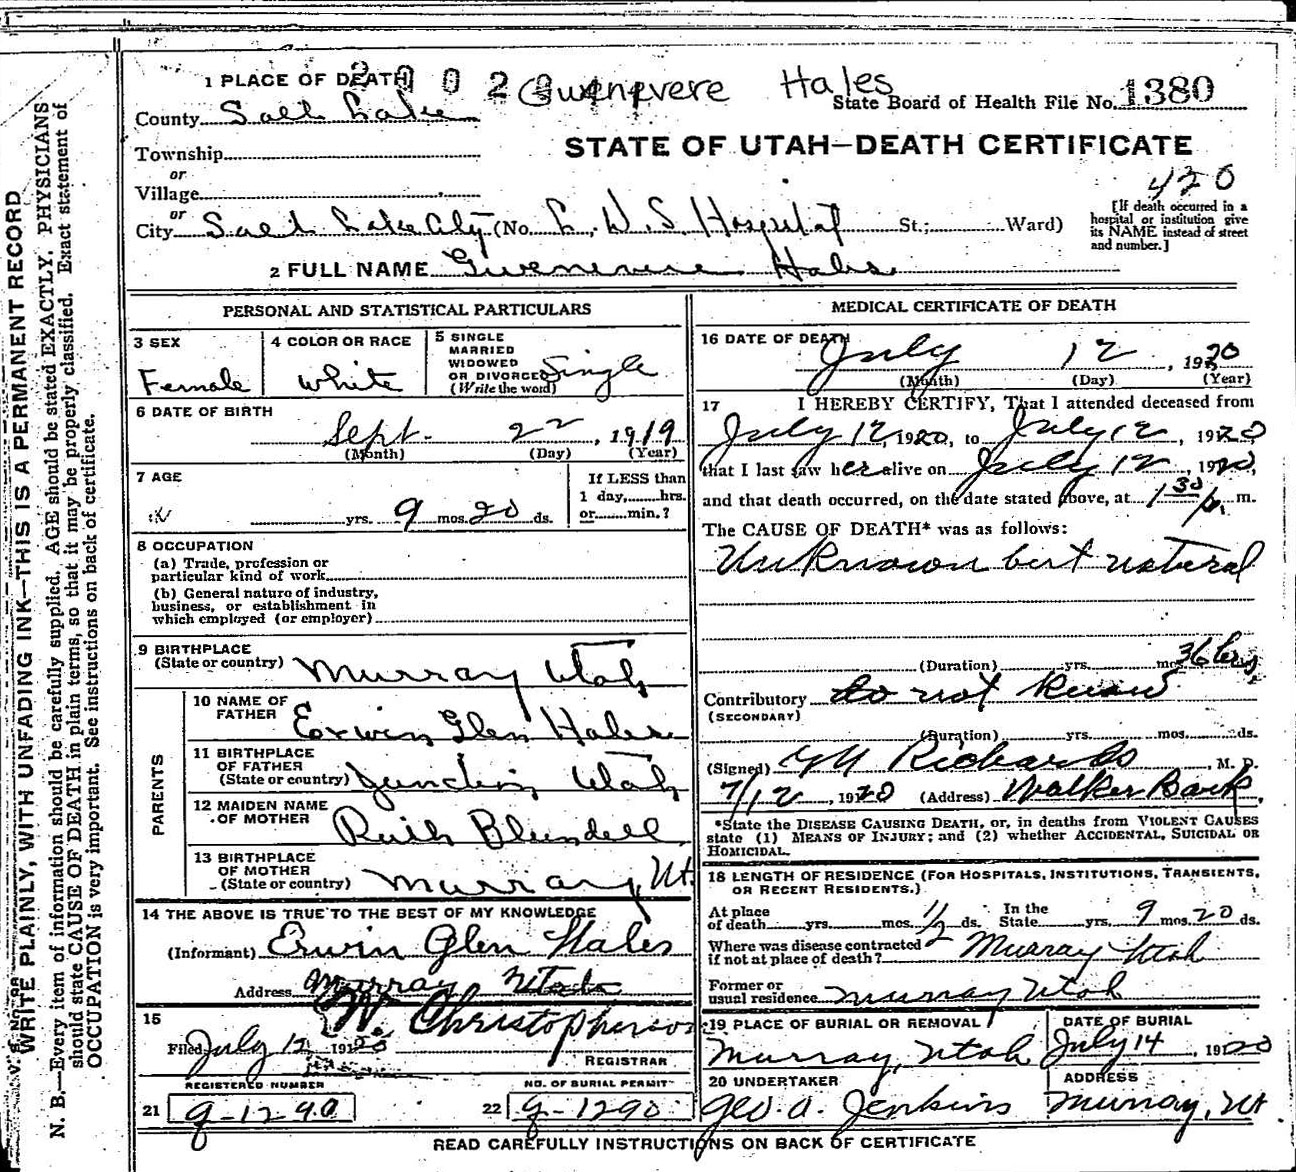 1 PLACE OF DEATH 2 0 0 2 Gwenevere Hales
State Board of Health File No. 1380
County Salt Lake
STATE OF UTAH—DEATH CERTIFICATE
Township
or
Village
420
or
City Salt Lake City (No. L. D. S. Hospital St.; Ward)
[If death occurred in a
hospital or institution give
its NAME instead of street
and number.]
2 FULL NAME Gwenevere Hales
PERSONAL AND STATISTICAL PARTICULARS
3 SEX
Female
4 COLOR OR RACE
White
5 SINGLE
MARRIED
WIDOWED
OR DIVORCED
(Write the word)
Single
6 DATE OF BIRTH
Sept. 22, 1919
(Month) (Day) (Year)
7 AGE
yrs. 9 mos. 20 ds.
If LESS than
1 day, hrs.
or min.?
8 OCCUPATION
(a) Trade, profession or
particular kind of work
(b) General nature of industry,
business, or establishment in
which employed (or employer)
9 BIRTHPLACE
(State or country) Murray Utah
PARENTS
10 NAME OF
FATHER Erwin Glen Hales
11 BIRTHPLACE
OF FATHER
(State or country) Junction Utah
12 MAIDEN NAME
OF MOTHER Ruth Blundell
13 BIRTHPLACE
OF MOTHER
(State or country) Murray, Ut.
14 THE ABOVE IS TRUE TO THE BEST OF MY KNOWLEDGE
(Informant) Erwin Glen Hales
Address Murray Utah
15
W. Christopherson
Filed July 12 1920
REGISTRAR
REGISTERED NUMBER
21 9-1290
NO. OF BURIAL PERMIT
22 9-1290
MEDICAL CERTIFICATE OF DEATH
16 DATE OF DEATH
July 12, 1920
(Month) (Day) (Year)
17 I HEREBY CERTIFY, That I attended deceased from
July 12, 1920, to July 12, 1920
that I last saw her alive on July 12, 1920,
and that death occurred, on the date stated above, at 1 30 p. m.
The CAUSE OF DEATH* was as follows:
Unknown but natural
(Duration) yrs. mos. 36 hrs.
Contributory do not know
(SECONDARY)
(Duration) yrs. mos. ds.
(Signed) Richards M. D.
7/12, 1920 (Address) Walker Bank.
*State the DISEASE CAUSING DEATH, or, in deaths from VIOLENT CAUSES
state (1) MEANS OF INJURY; and (2) whether ACCIDENTAL, SUICIDAL OR
HOMICIDAL.
18 LENGTH OF RESIDENCE (FOR HOSPITALS, INSTITUTIONS, TRANSIENTS,
OR RECENT RESIDENTS.)
At place
of death yrs. mos. 1/2 ds.
In the
State yrs. 9 mos. 20 ds.
Where was disease contracted
if not at place of death? Murray Utah
Former or
usual residence Murray Utah
19 PLACE OF BURIAL OR REMOVAL
Murray, Utah
DATE OF BURIAL
July 14, 1920
20 UNDERTAKER
Geo. A. Jenkins
ADDRESS
Murray, Ut
READ CAREFULLY INSTRUCTIONS ON BACK OF CERTIFICATE
WRITE PLAINLY, WITH UNFADING INK—THIS IS A PERMANENT RECORD
N. B.—Every item of information should be carefully supplied. AGE should be stated EXACTLY. PHYSICIANS
should state CAUSE OF DEATH in plain terms, so that it may be properly classified. Exact statement of
OCCUPATION is very important. See instructions on back of certificate.